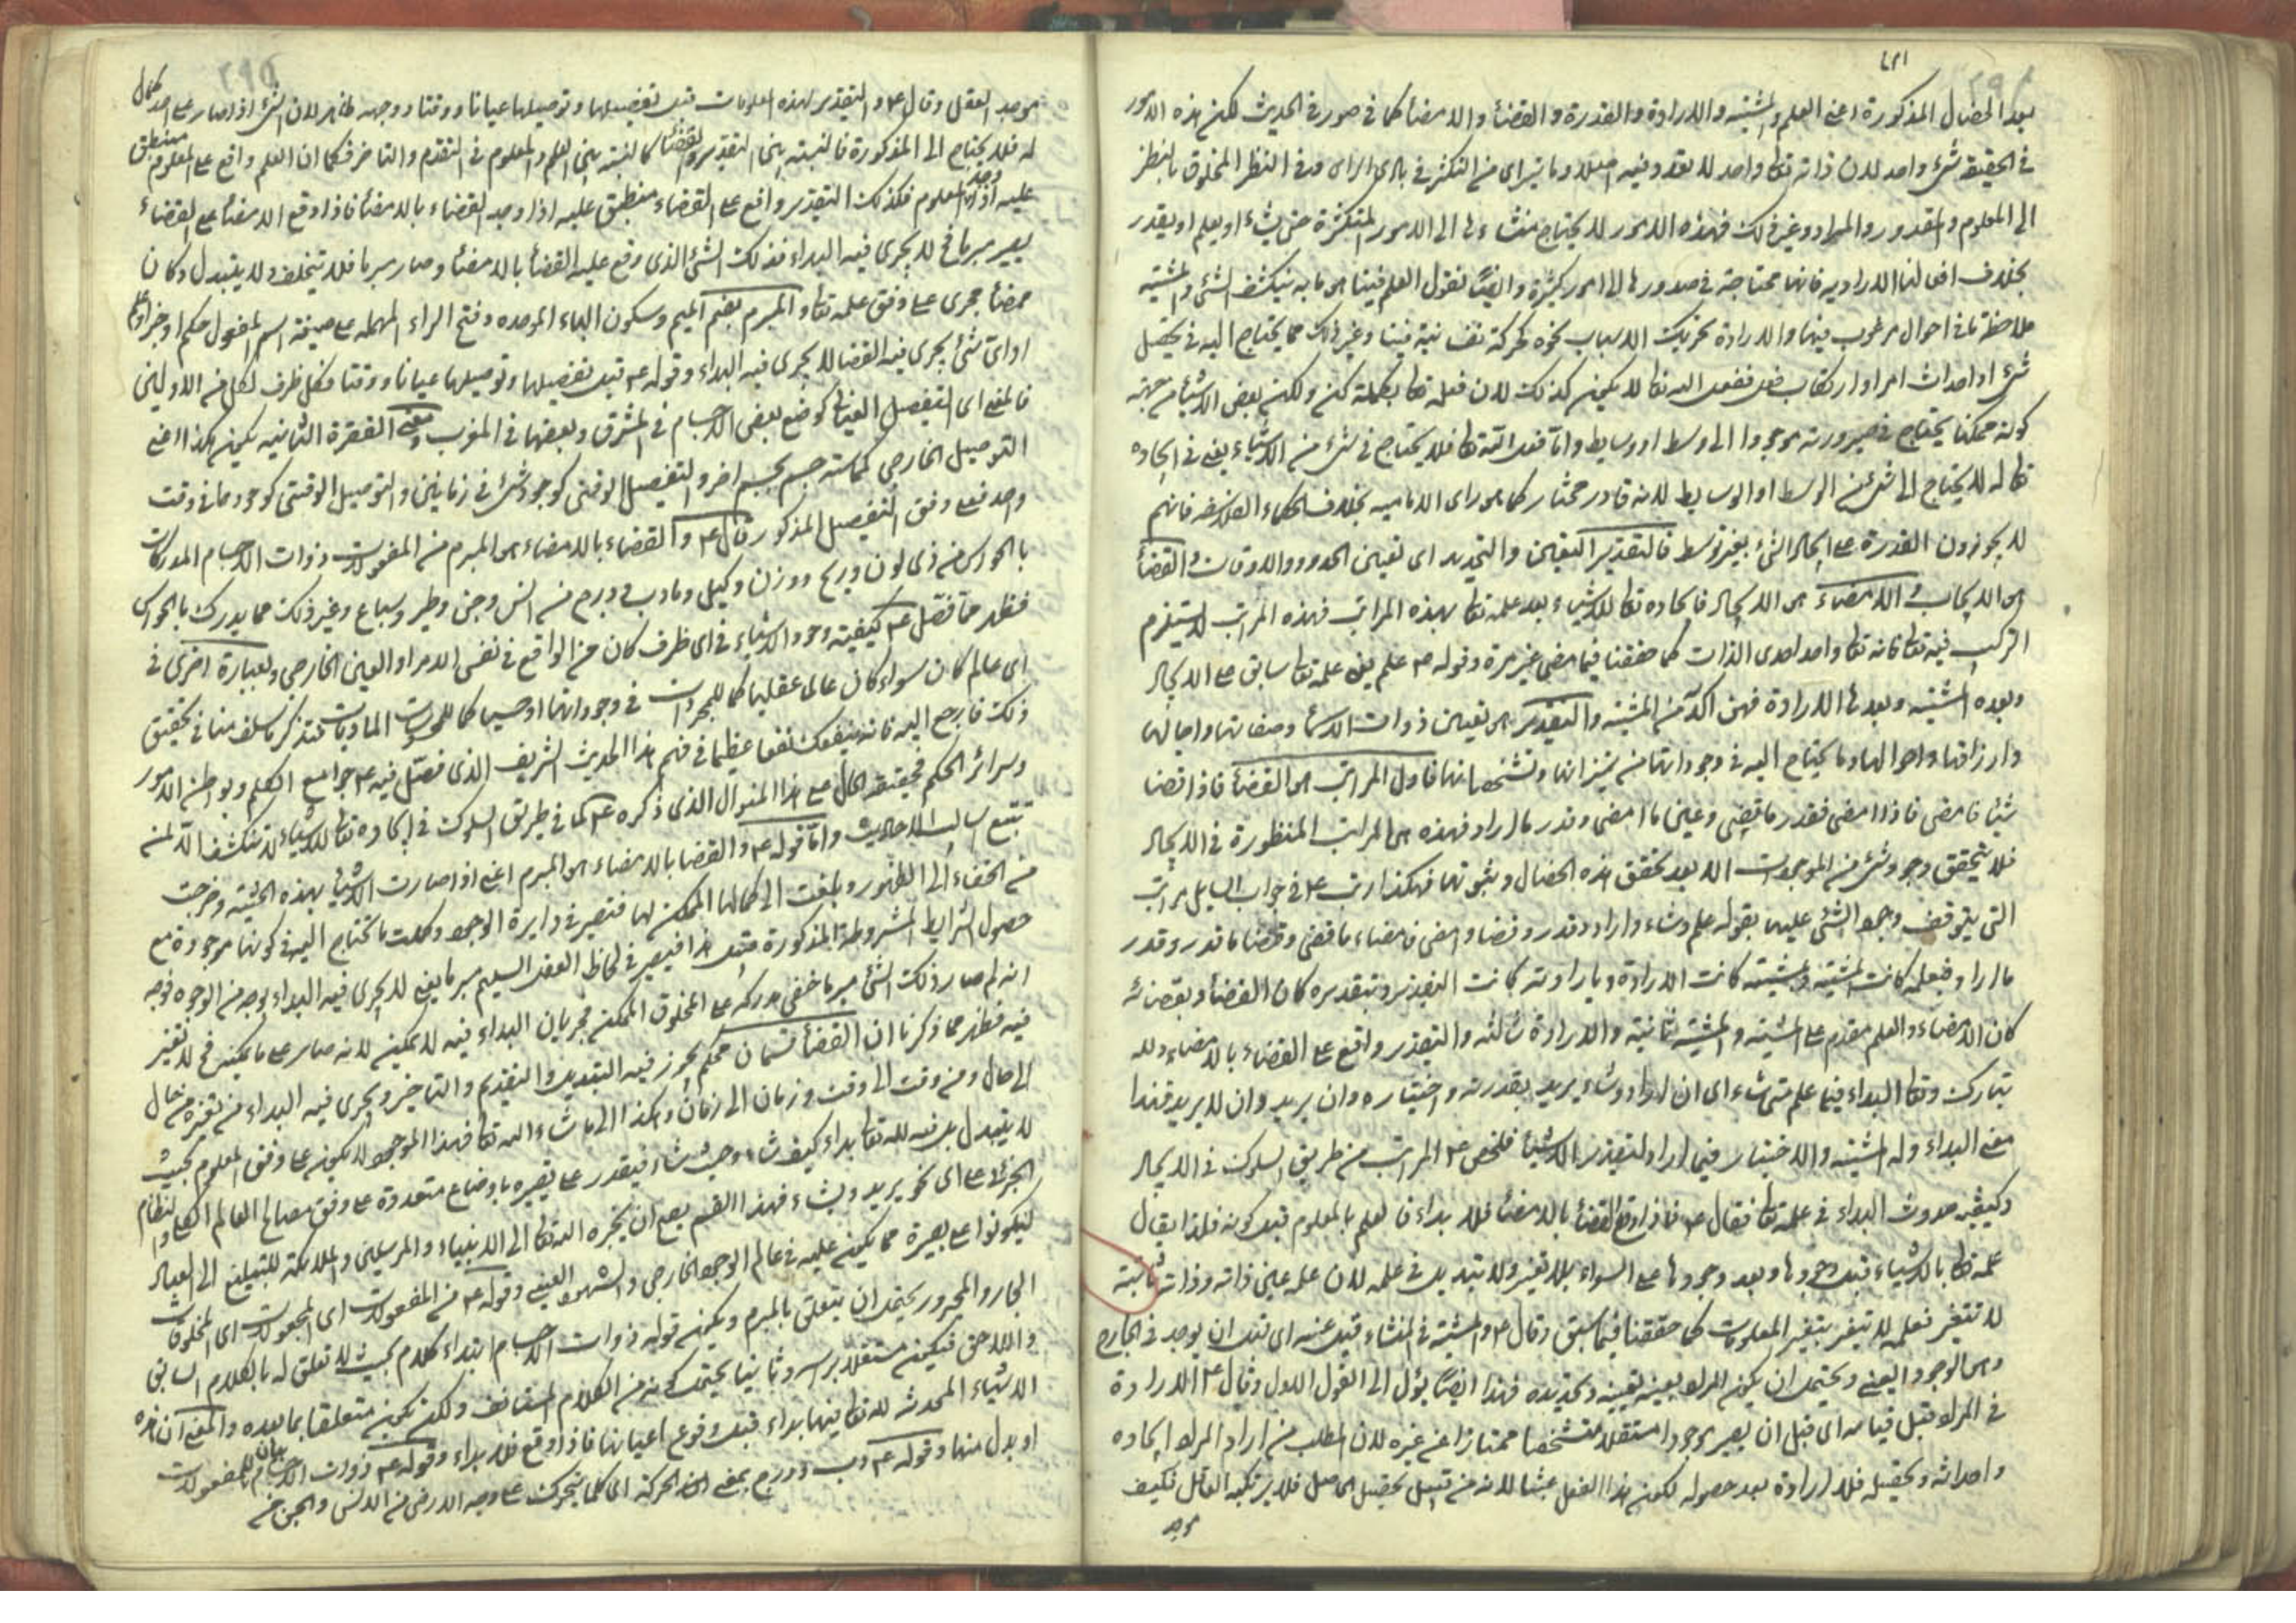 بعد الخصال المذكورة اعنى العلم والمشيته والارادة والقدرة والقضأ والامضأ كما فى صور فى الحديث لكن هذه الامور
فى الحقيقة شىء واحد لان ذاته تعالى واحد لا تعدد فيه اصلا وما يترااى من التكثر فى بادى الراى وفى النظر المخلوق بالنظر
الى المعلوم والمقدور والمراد وغير ذلك فهذه الامور لا يحتاج الى الامور المتكثرة حتى يشاء او يعلم او يقدر
بخلاف افعالنا الارادية فانها محتاجة فى صدورها الى امور كثيرة وايضًا نقول العلم فينا هى ما به ينكشف الشئ والمشية
ملاحظة فى احوال مرغوب فيها والارادة تحريك الاسباب نحوه بحركة نفسانية فينا وغير ذلك مما يحتاج اليه فى تحصيل
شىء او احداث امر او ارتكاب فعل ففعل الله تعالى لا يكون كذلك لان فعله تعالى بكلمة كن ولكن بعض الاشيأ من جهة
كونه ممكنا يحتاج فى صيرورته موجودا الى وسط او وسايط واما فعل الله تعالى فلا يحتاج فى شىء من الاشياء يعنى فى ايجاده
تعالى له لا يحتاج الى شىء من الوسط او الوسايط لانه قادر مختار كما هو راى الامامية بخلاف الحكماء الفلاسفة فانهم
لا يجوزون القدرة على ايجاد الشئ بغير توسط فالتقدير التعيين والتحديد اى تعيين الحدود والاوقات والقضأ
هى الايجاب والامضاء هى الايجاد فايجاده تعالى للاشياء بعد علمه تعالى بهذه المراتب فهذه المراتب لا يستلزم
التركيب فيه تعالى فانه تعالى واحد احدى الذات كما حققنا فيما مضى غير مرة وقوله ع علم يعنى علمه تعالى سابق على الايجاد
وبعده المشيته وبعدها الارادة فهى اكد من المشيته والتقدير هى تعيين ذوات الاشيأ وصفاتها واجالها
وارزاقها واحوالها وما يحتاج اليه فى وجوداتها من مميزاتها وتشخصاتها فاول المراتب هى القضأ فاذا قضا
شيئا فامضى فاذا امضى فقدر ما قضى وعين ما امضى وقدر ما اراد فهذه هى المراتب المنظورة فى الايجاد
فلا يتحقق وجود شىء من الموجودات الا بعد تحقق هذه الخصال وثبوتها فهكذا رتب ع فى جواب السايل مراتب
التى يتوقف وجود الشئ عليها بقوله علم وشاء واراد وقدر وقضا وامضى فامضاء ما قضى وقضا ما قدر وقدر
ما اراد فبعلمه كانت المشية وبمشيته كانت الارادة وبارادته كانت التقدير وبتقديره كان القضأ وبقضائه
كان الامضاء والعلم مقدم على المشيته والمشية ثانية والارادة ثالثه والتقدير واقع على القضاء بالامضاء ولله
تبارك وتعالى البداء فيما علم متى شاء اى ان اراد وشاء يريد بقدرته واختياره وان يريد وان لا يريد فهذا
معنى البداء وله المشيته والاختيار فيما اراد لتقدير الاشيأ فلخص ع المراتب من طريق السلوك فى الايجاد
وكيفية حدوث البداء فى علمه تعالى فقال ع فاذا وقع القضأ بالامضأ فلا بداء فالعلم بالمعلوم قبل كونه فلذا يقال
علمه تعالى بالاشياء قبل وجودها وبعد وجودها على السواء بلا تغير ولا تبديل فى علمه لان علمه عين ذاته وذاته ثابتة
لا تتغير فعلمه لا يتغير بتغير المعلومات كما حققنا فيما سبق وقال ع والمشية فى المنشاء قبل عينه اى قبل ان يوجد فى الخارج
وهى الوجود العينى ويحتمل ان يكون المراد بعينه تعيينه وتحديده فهذا ايضًا يؤل الى القول الاول وقال ع الارادة
فى المراد قبل قيامه اى قبل ان يصير موجودا مستقلا متشخصا ممتازا عن غيره لان المطلب من اراد المراد ايجاده
واحداثه وتحصيله فلا ارادة بعد حصوله لكون هذا الفعل عبثا لانه من قبيل تحصيل الحاصل فلا يرتكبه العاقل فكيف
موجد
موجد العقل وقال ع والتقدير لهذه المعلومات قبل تفصيلها وتوصيلها عيانا ووقتا ووجهه ظاهر لان الشئ اذا صار على احد كمال
له فلا يحتاج الى المذكورة فالنسبته بين التقدير والقضأ كالنسبته بين العلم والمعلوم فى التقدم والتاخر فكما ان العلم واقع على المعلوم منطبق
عليه اذا وجد المعلوم فكذلك التقدير واقع على القضاء منطبق عليه اذا وجد القضاء بالامضأ فاذا وقع الامضأ على القضاء
يصير مبرما لا يجرى فيه البداء فذلك الشئ الذى وقع عليه القضأ بالامضأ وصار مبرما فلا يتخلف ولا يتبدل وكان
ممضأ مجرى على وفق علمه تعالى والمبرم بضم الميم وسكون الباء الموحده وفتح الراء المهمله على صيغة اسم المفعول حكم او خبر
او اى شئ يجرى فيه القضا لا يجرى فيه البداء وقوله ع قبل تفصيلها وتوصيلها عيانا ووقتا فكل ظرف لكل من الاولين
فالمعنى اى التفصيل العيانى كوضع بعض الاجسام فى المشرق وبعضها فى المغرب ومعنى الفقرة الثانيه يكون هكذا اعنى
التوصيل الخارجى كماسة جسم بجسم اخر والتفصيل الوقتى كوجود شىء فى زمانين والتوصيل الوقتى كوجودهما فى وقت
واحد فعلى وفق التفصيل المذكور قال ع والقضاء بالامضاء هى المبرم من المفعولات ذوات الاجسام المدركات
بالحواس من ذى لون وريح ووزن وكيل وما دب ودرج من انس وجن وطير وسباع وغير ذلك مما يدرك بالحواس
فظهر مما فصل ع كيفيته وجود الاشياء فى اى ظرف كان من الواقع فى نفس الامر او العين الخارجى وبعبارة اخرى فى
اى عالم كان سواء كان عالما عقليا كما للمجردات فى وجوداتها او حسيا كما للمحسوسات الماديات فتذكر ما سلف منا فى تحقيق
ذلك فارجع اليه فانه ينفعك نفعا عظيما فى فهم هذا الحديث الشريف الذى فصل فيه ع جوامع الكلم وبواطن الامور
وسرائر الحكم فحقيقة الحال على هذا المنوال الذى ذكره ع كما فى طريق السلوك فى ايجاده تعالى للاشياء لا ينكشف الا لمن
تتبع اساليب الاحاديث واما قوله ع والقضا بالامضاء هى المبرم اعنى اذا صارت الاشياء بهذه الحيثية وخرجت
من الخفاء الى الظهور وبلغت الى كمالها الممكن لها فتصير فى دايرة الوجود وكملت ما تحتاج اليه فى كونها موجودة مع
حصول الشرايط المشروطة المذكورة قبل هذا فيصير فى لحاظ العقل السليم مبرما يعنى لا يجرى فيه البداء بوجه من الوجوه فوجه
انه لم صار ذلك الشئ مبرما خفى مدركه على المخلوق الممكن فجريان البداء فيه لا يمكن لانه صار على ما يمكن فح لا تغير
فيه فظهر مما ذكرنا ان القضأ قسمان محكم يجوز فيه التبديل والتقديم والتاخير ويجرى فيه البداء من تغيره من حال
الى حال ومن وقت الى وقت وزمان الى زمان وهكذا الى ما شاء الله تعالى فهذا الموجود لا يكون على وفق المعلوم بحيث
لا يتبدل بل فيه لله تعالى بداء كيف شاء وحيث شاء فيقدر على تغيره باوضاع متعددة على وفق مصالح العالم الكلى والنظام
الجزئى على اى نحو يريد ويشاء فهذا القسم يصح ان يخبره الله تعالى الى الانبياء والمرسلين والملائكة للتبليغ الى العباد
ليكونوا على بصيرة مما يكون عليه فى عالم الوجود الخارجى والشهود العينى وقوله ع من المفعولات اى المجعولات اى المخلوقات
الجار والمجرور يحتمل ان يتعلق بالمبرم ويكون قوله ذوات الاجسام ابتداء كلام بحيث لا تعلق له بالكلام السابق
واللاحق فيكون مستقلا براسه وثانيا يحتمل كونه من الكلام المستانف ولكن تكون متعلقا بما بعده والمعنى ان هذه
الاشياء المحدثه لله تعالى فيها بداء قبل وقوع اعيانها فاذا وقع فلا بداء وقوله ع ذوات الاجسام بيان للمفعولات
او بدل منها وقوله ع دب ودرج بمعنى الحركة اى كلما يتحرك على وجه الارض من الانس والجن